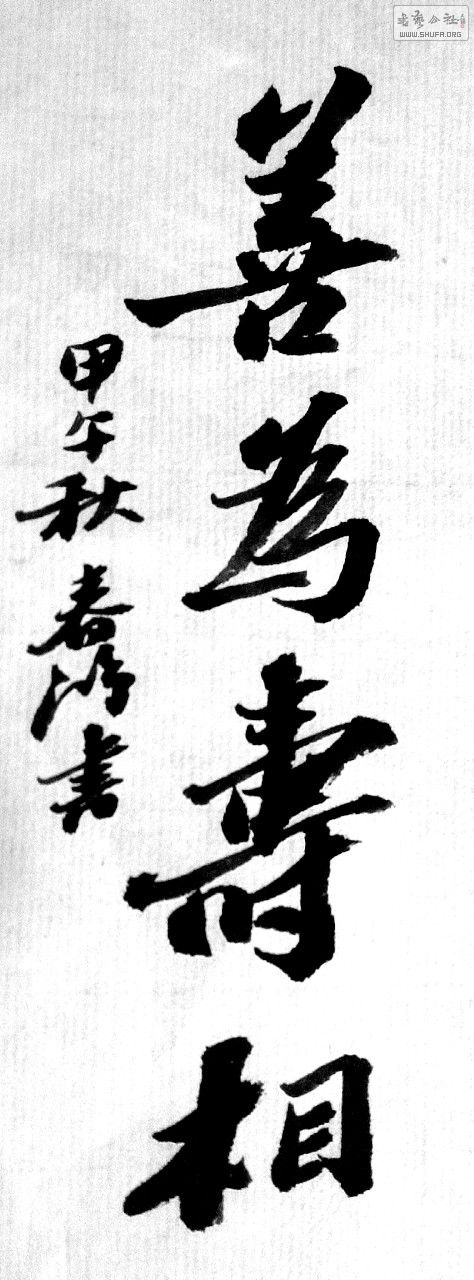 善為壽相
甲午秋
春鴻書
书艺公社
WWW.SHUFA.ORG